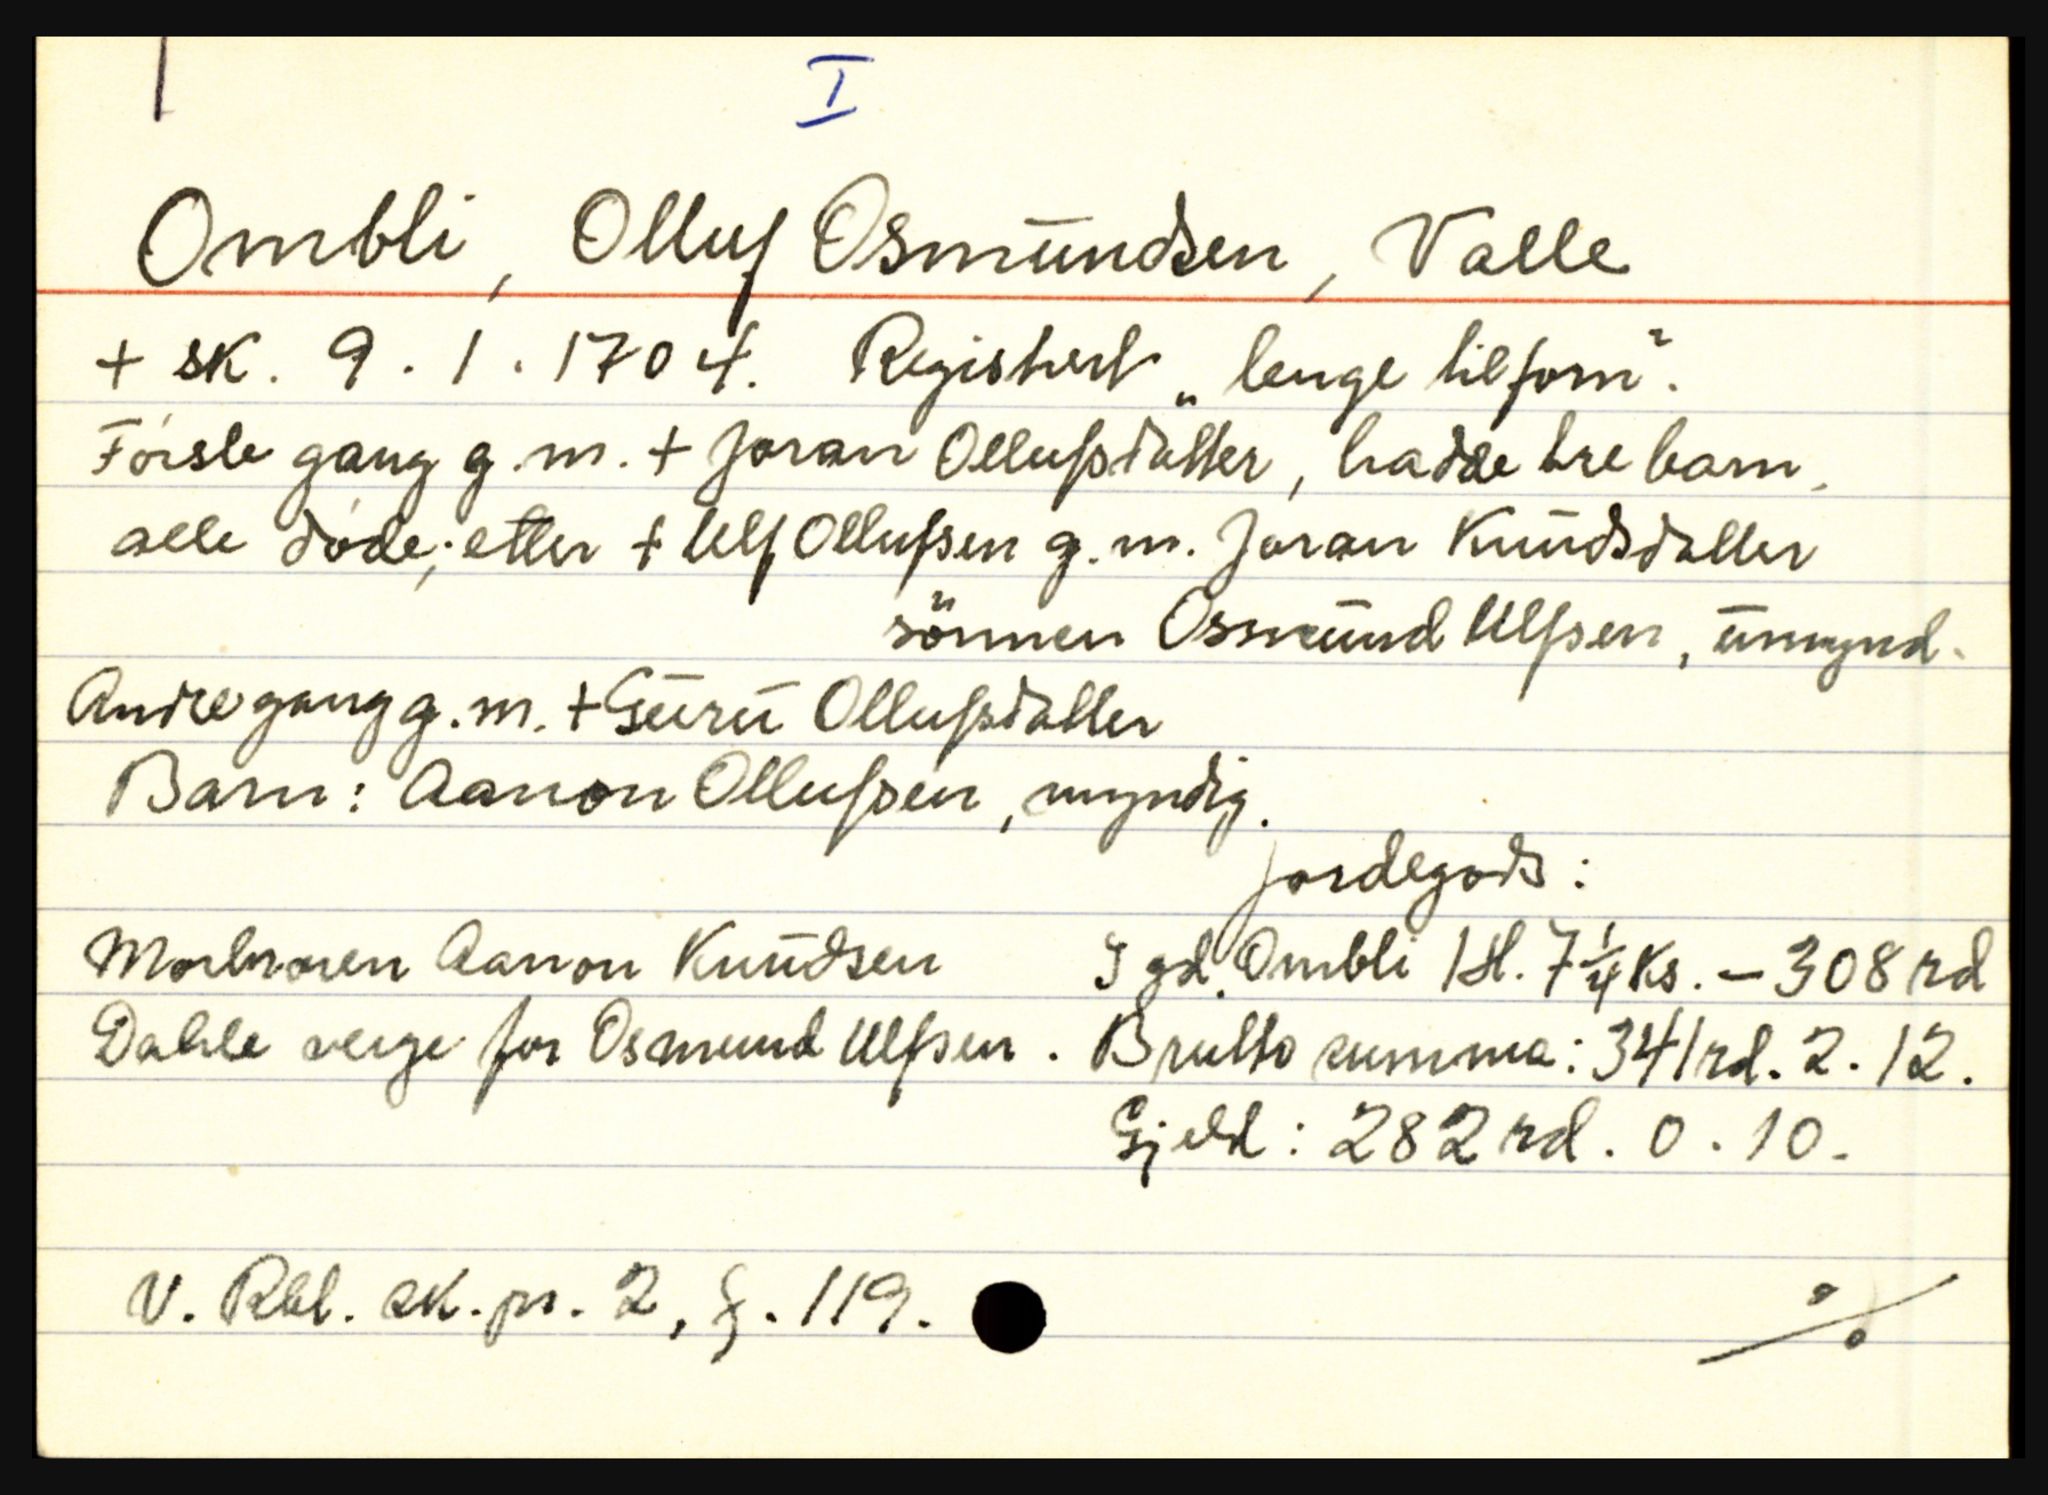 I
Ombli, Olluf Osmundsen, Valle
+ sk. 9.1.1704. Registrert „lenge tilforn".
Første gang g.m. + Joran Ollufsdatter, hadde tre barn,
alle døde; etter + Ulf Ollufsen g.m. Joran Knudsdatter
sönnen Osmund Ulfsen, umynd.
Andre gang g.m. + Guru Ollufsdatter
Barn: Aanon Ollufsen, myndig.
Jordegods:
Morbroren Aanon Knudsen
I gd. Ombli 1 sl. 7 1/4 ks. – 308 rd
Dahle verge for Osmund Ulfsen.
Brutto summa: 341 rd. 2. 12.
Gjeld: 282 rd. 0. 10.
V. Rbl. sk. pr. 2, f. 119.
%